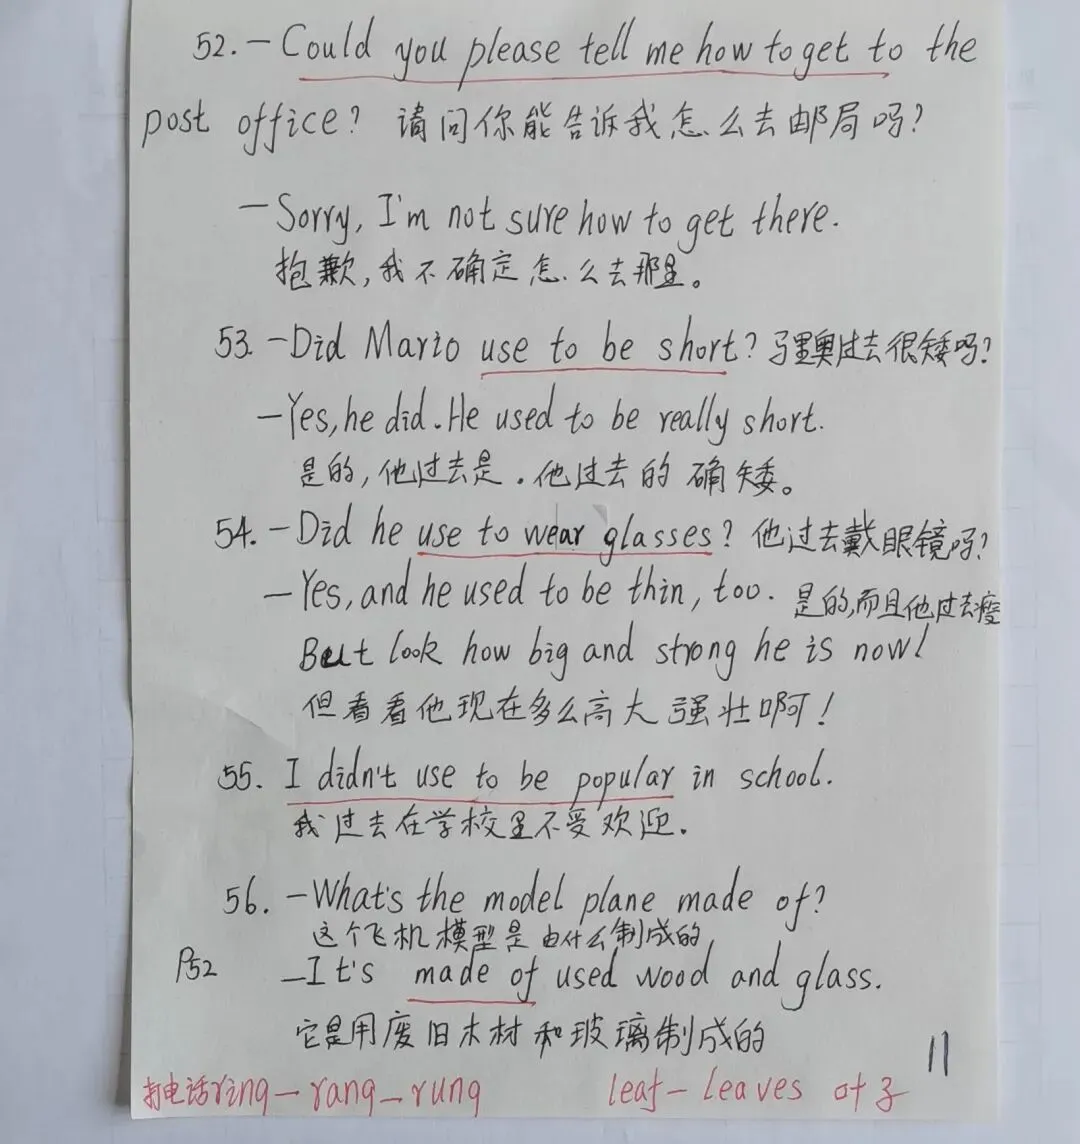 52. — Could you please tell me how to get to the
post office? 请问你能告诉我怎么去邮局吗?
— Sorry, I'm not sure how to get there.
抱歉,我不确定怎么去那里。
53. — Did Mario use to be short? 马里奥过去很矮吗?
— Yes, he did. He used to be really short.
是的,他过去是.他过去的确矮。
54. — Did he use to wear glasses? 他过去戴眼镜吗?
— Yes, and he used to be thin, too. 是的,而且他过去瘦
But look how big and strong he is now!
但看看他现在多么高大强壮啊!
55. I didn't use to be popular in school.
我过去在学校里不受欢迎.
56. — What's the model plane made of?
这个飞机模型是由什么制成的
P52 — It's made of used wood and glass.
它是用废旧木材和玻璃制成的
11
打电话ring — rang — rung leaf — leaves 叶子